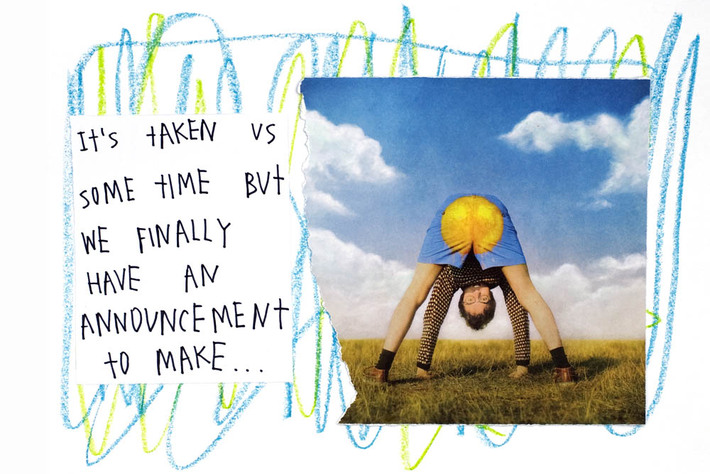 IT'S TAKEN US
SOME TIME BUT
WE FINALLY
HAVE AN
ANNOUNCEMENT
TO MAKE...